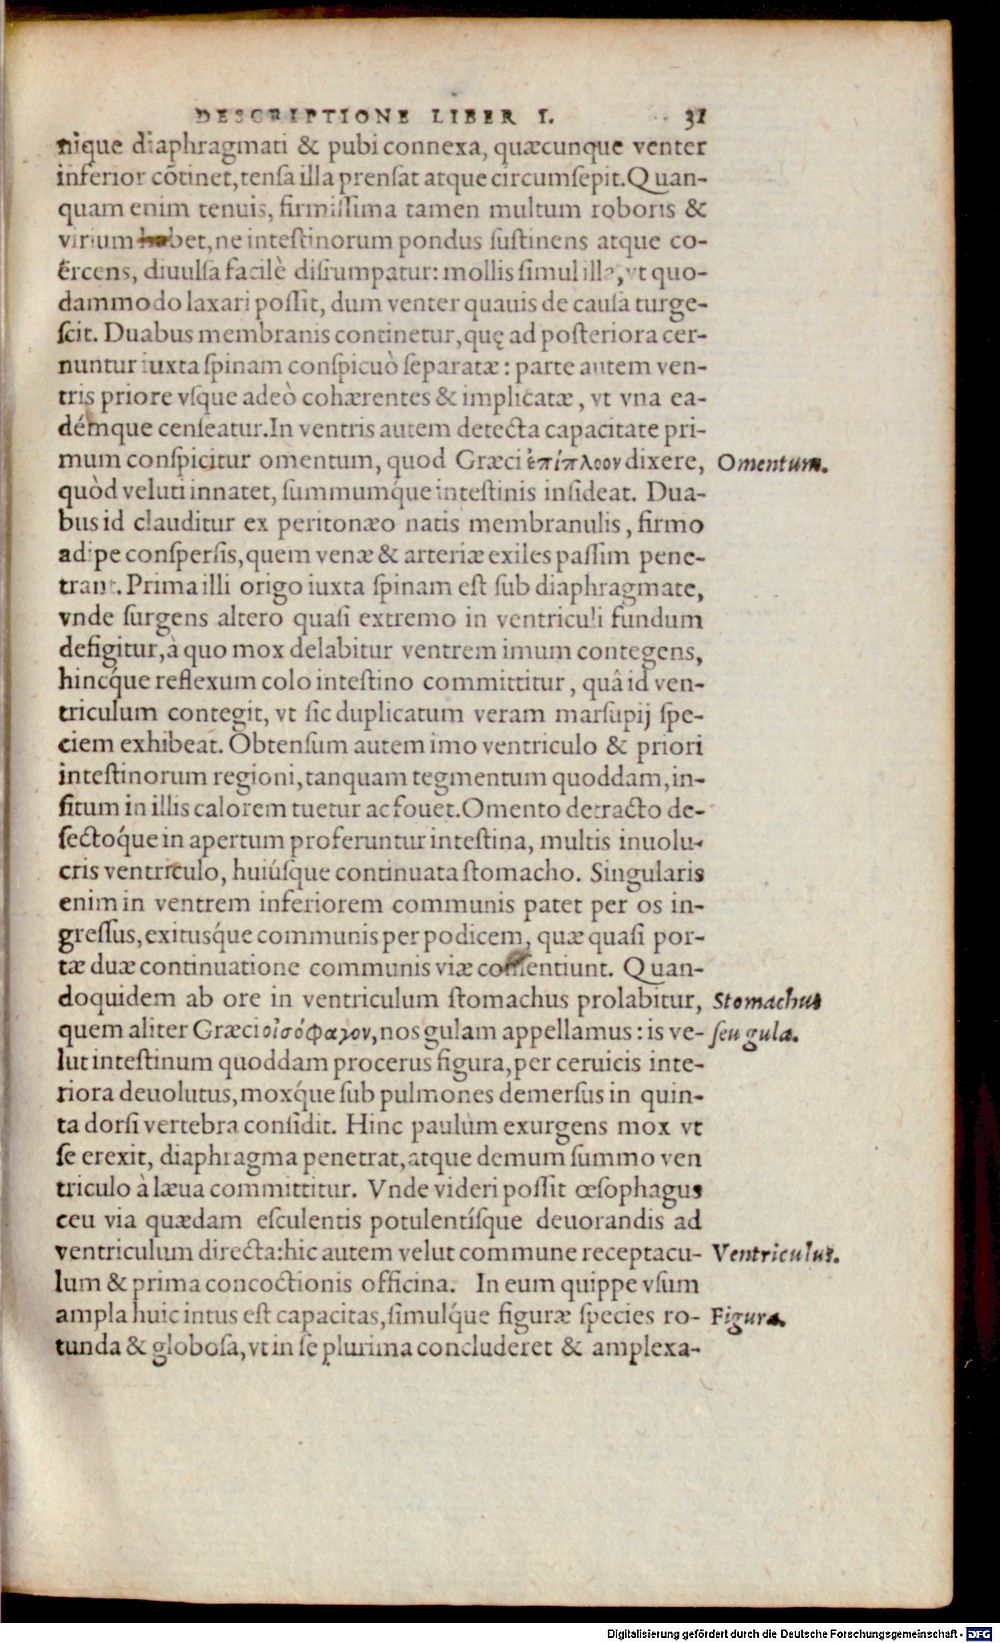 DESCRIPTIONE LIBER I. 31
nique diaphragmati & pubi connexa, quæcunque venter
inferior cōtinet, tensa illa prensat atque circumsepit. Quan-
quam enim tenuis, firmissima tamen multum roboris &
virium habet, ne intestinorum pondus sustinens atque co-
ërcens, diuulsa facilè disrumpatur: mollis simul illa, vt quo-
dammodo laxari possit, dum venter quauis de causa turge-
scit. Duabus membranis continetur, quę ad posteriora cer-
nuntur iuxta spinam conspicuò separatæ: parte autem ven-
tris priore vsque adeò cohærentes & implicatæ, vt vna ea-
démque censeatur. In ventris autem detecta capacitate pri-
mum conspicitur omentum, quod Græci ἐπίπλοον dixere, Omentum.
quòd veluti innatet, summumq́ue intestinis insideat. Dua-
bus id clauditur ex peritonæo natis membranulis, firmo
adipe conspersis, quem venæ & arteriæ exiles passim pene-
trant. Prima illi origo iuxta spinam est sub diaphragmate,
vnde surgens altero quasi extremo in ventriculi fundum
defigitur, à quo mox delabitur ventrem imum contegens,
hincq́ue reflexum colo intestino committitur, quâ id ven-
triculum contegit, vt sic duplicatum veram marsupij spe-
ciem exhibeat. Obtensum autem imo ventriculo & priori
intestinorum regioni, tanquam tegmentum quoddam, in-
situm in illis calorem tuetur ac fouet. Omento detracto de-
sectoq́ue in apertum proferuntur intestina, multis inuolu-
cris ventriculo, huiúsque continuata stomacho. Singularis
enim in ventrem inferiorem communis patet per os in-
gressus, exitusq́ue communis per podicem, quæ quasi por-
tæ duæ continuatione communis viæ consentiunt. Quan-
doquidem ab ore in ventriculum stomachus prolabitur, Stomachus
quem aliter Græci οἰσόφαγον, nos gulam appellamus: is ve- seu gula.
lut intestinum quoddam procerus figura, per ceruicis inte-
riora deuolutus, moxq́ue sub pulmones demersus in quin-
ta dorsi vertebra considit. Hinc paulùm exurgens mox vt
se erexit, diaphragma penetrat, atque demum summo ven
triculo à læua committitur. Vnde videri possit œsophagus
ceu via quædam esculentis potulentísque deuorandis ad
ventriculum directa: hic autem velut commune receptacu- Ventriculus.
lum & prima concoctionis officina. In eum quippe vsum
ampla huic intus est capacitas, simulq́ue figuræ species ro- Figura.
tunda & globosa, vt in se plurima concluderet & amplexa-
Digitalisierung gefördert durch die Deutsche Forschungsgemeinschaft - DFG